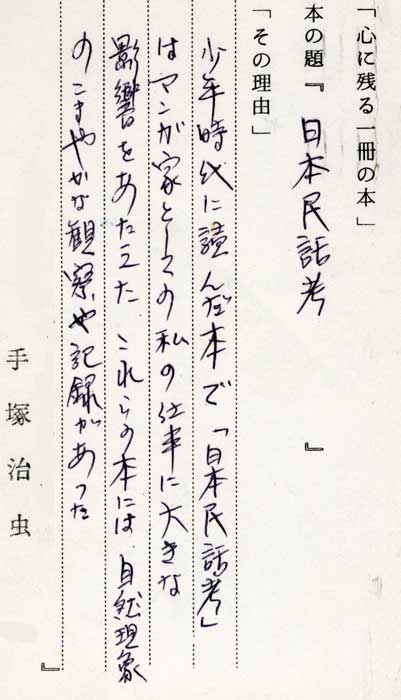 「心に残る一冊の本」
本の題『 日本民話考 』
「その理由」
少年時代に読んだ本で「日本民話考」
はマンガ家としての私の仕事に大きな
影響をあたえた これらの本には 自然現象
のこまやかな観察や記録があった
手塚治虫
』